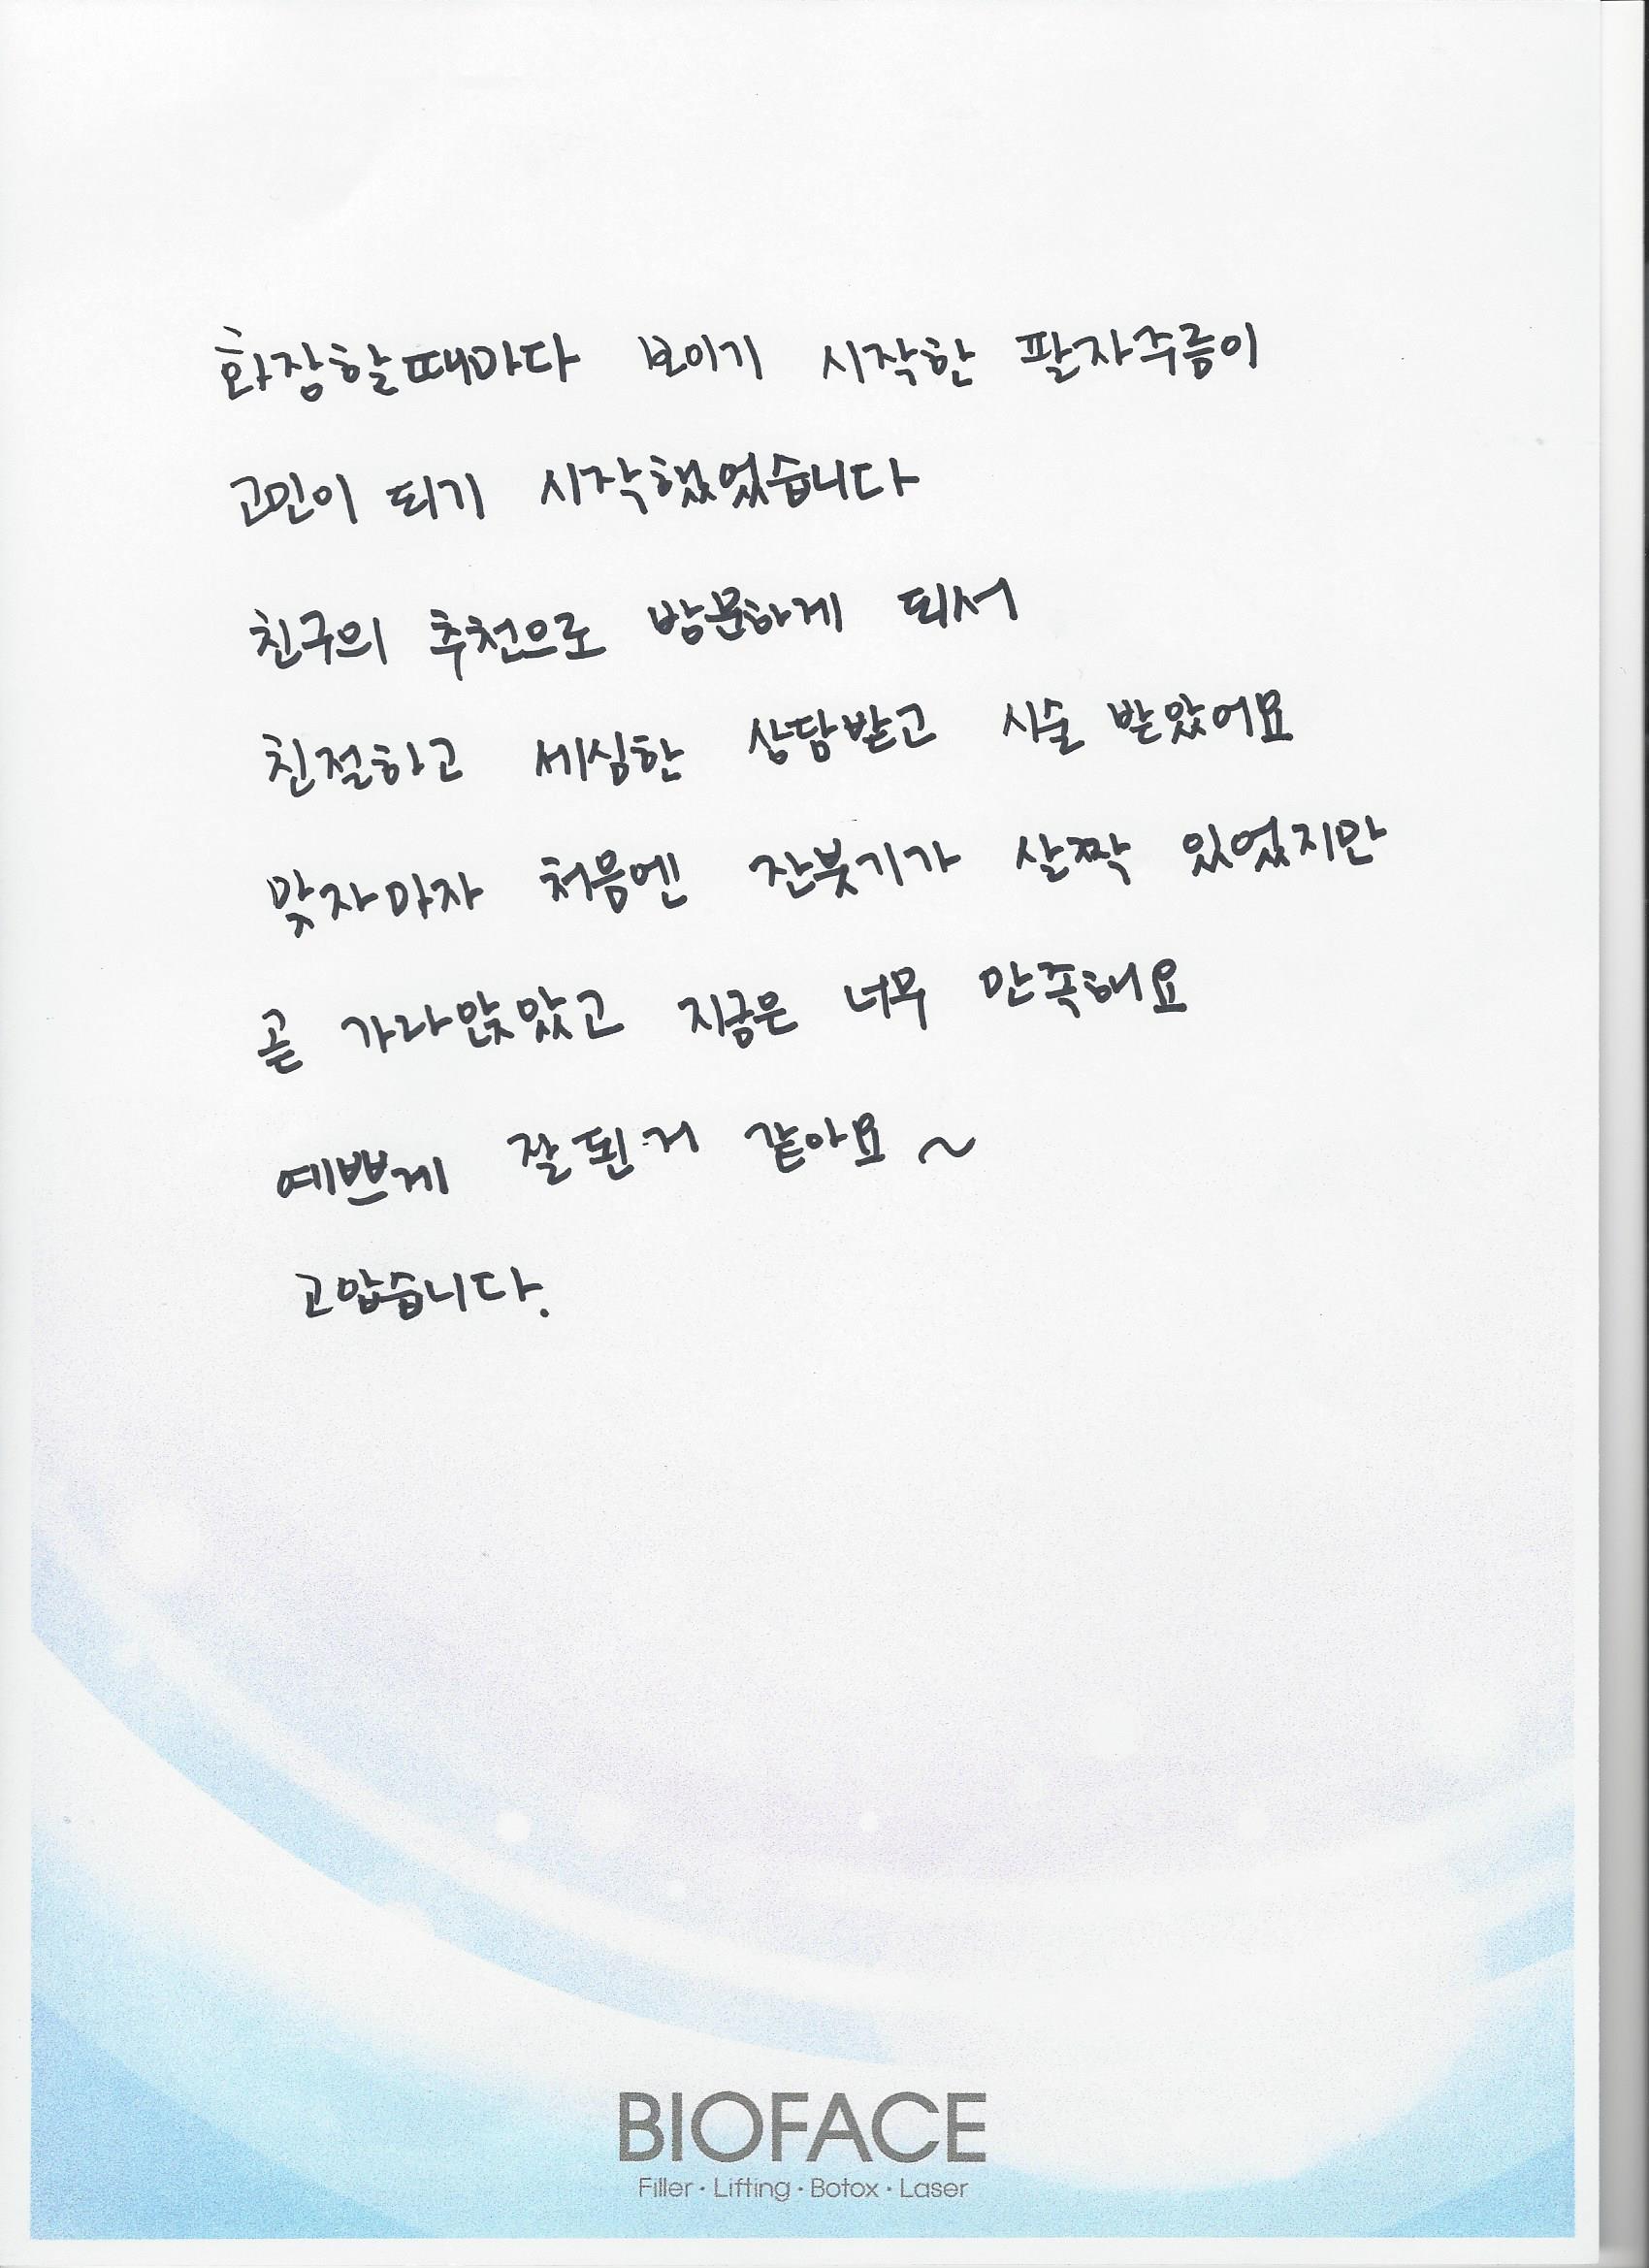 화장할때마다 보이기 시작한 팔자주름이
고민이 되기 시작했었습니다
친구의 추천으로 방문하게 되서
친절하고 세심한 상담받고 시술 받았어요
맞자마자 처음엔 잔붓기가 살짝 있었지만
곧 가라앉았고 지금은 너무 만족해요
예쁘게 잘된거 같아요~
고맙습니다.
BIOFACE
Filler · Lifting · Botox · Laser